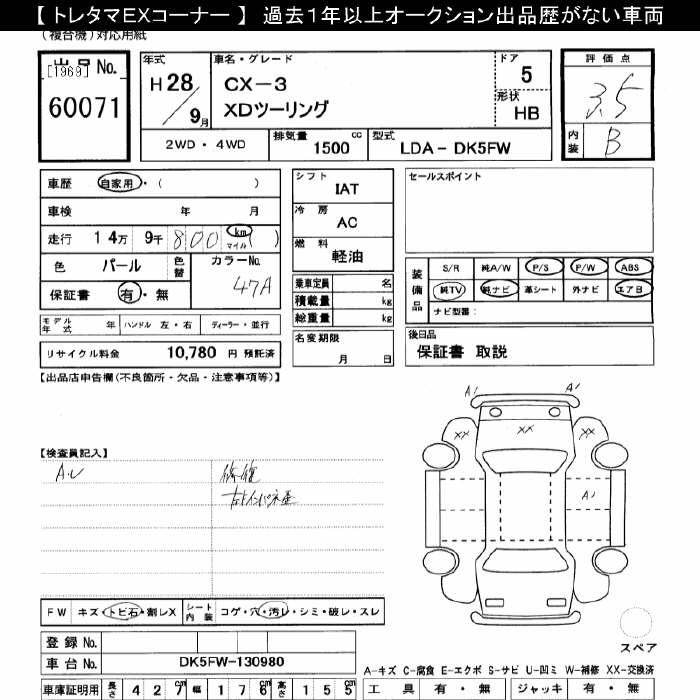 【 トレタマEXコーナー 】 過去1年以上オークション出品歴がない車両
(複合機)対応用紙
出品 No.
[1969]
60071
年式
H 28 / 9月
車名・グレード
CX-3
XDツーリング
ドア
5
形状
HB
評価点
3.5
内装
B
2WD・4WD
排気量
1500 cc
型式
LDA- DK5FW
車歴 自家用・( )
車検 年 月
走行 14万 9千 800 km マイル ( )
色 パール 色替
カラーNo.
47A
保証書 有・無
シフト
IAT
冷房
AC
燃料
軽油
乗車定員 名
積載量 kg
総重量 kg
名変期限
月 日
セールスポイント
装備品
S/R 純A/W P/S P/W ABS
純TV 純ナビ 革シート 外ナビ エアB
ナビ型番:
後日品
保証書 取説
モデル年式 年 ハンドル 左・右 ディーラー・並行
リサイクル料金 10,780 円 預託済
【出品店申告欄(不良箇所・欠品・注意事項等)】
【検査員記入】
修復
A1 A1
XX XX XX
A1
FW キズ・トビ石・割レX シート内装 コゲ・穴・汚レ・シミ・破レ・スレ
登録 No.
車台 No. DK5FW-130980
車庫証明用 長さ 427cm 幅 176cm 高さ 155cm
スペア
A-キズ C-腐食 E-エクボ S-サビ U-凹ミ W-補修 XX-交換済
工具 有・無 ジャッキ 有・無